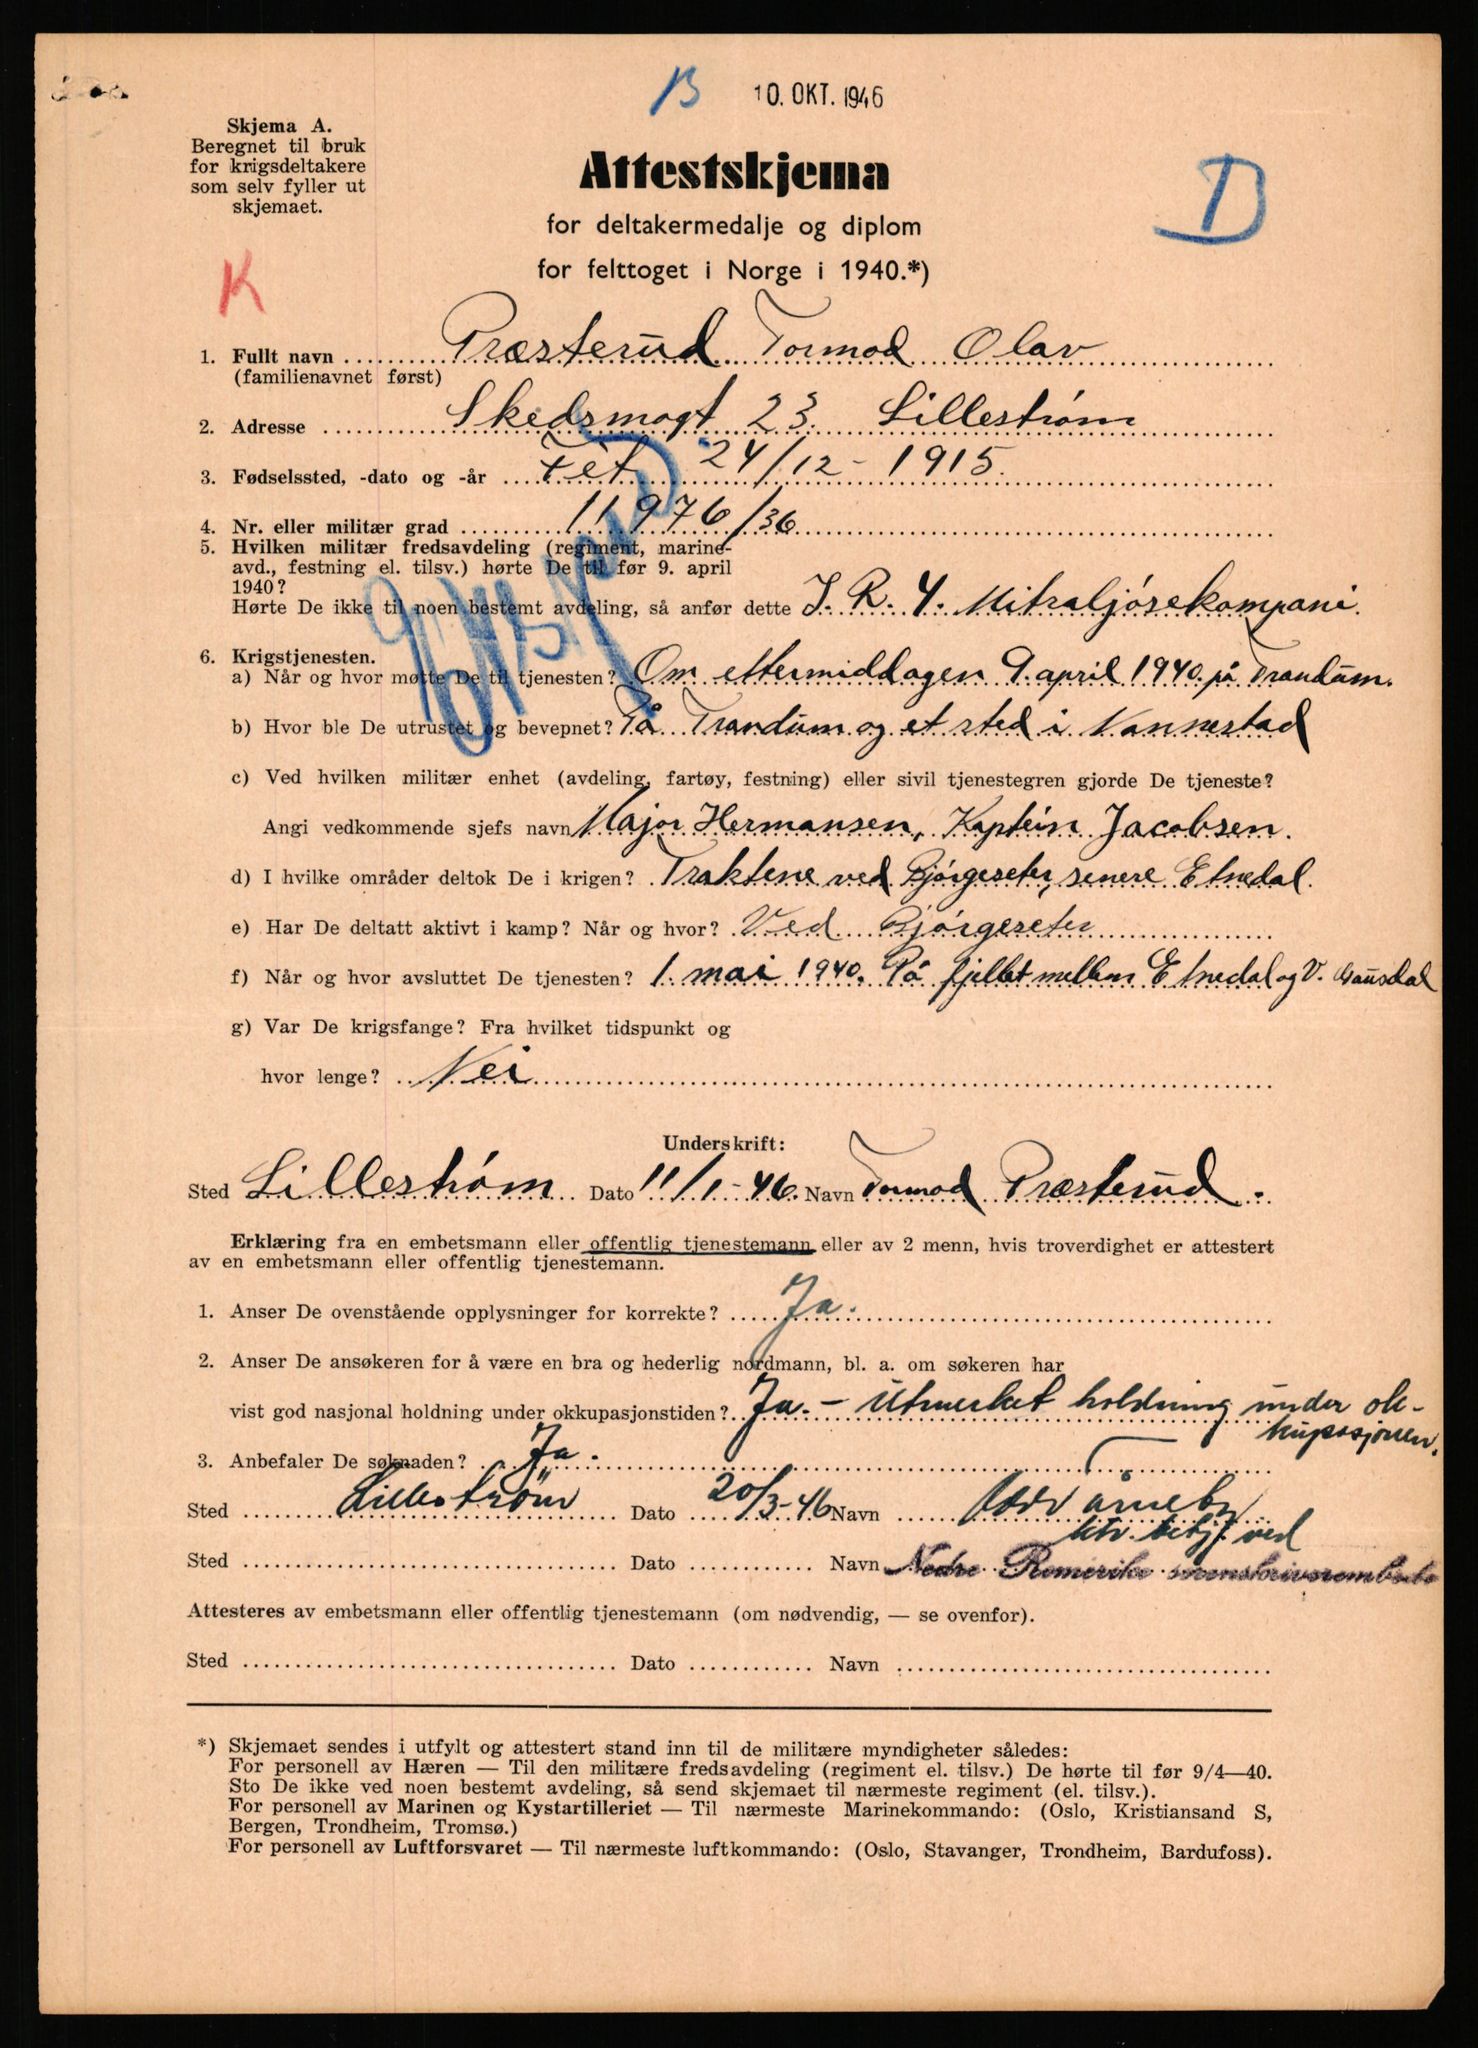 B 10. OKT. 1946
Skjema A.
Beregnet til bruk
for krigsdeltakere
som selv fyller ut
skjemaet.
Attestskjema
for deltakermedalje og diplom
for felttoget i Norge i 1940.*)
D
K
1. Fullt navn Præsterud Tormod Olav
(familienavnet først)
2. Adresse Skedsmogt 23. Lillestrøm
3. Fødselssted, -dato og -år Fet 24/12 - 1915.
4. Nr. eller militær grad 11976/36
5. Hvilken militær fredsavdeling (regiment, marine-
avd., festning el. tilsv.) hørte De til før 9. april
1940?
Hørte De ikke til noen bestemt avdeling, så anfør dette J. R. 4. Mitraljøsekompani.
6. Krigstjenesten.
a) Når og hvor møtte De til tjenesten? Om ettermiddagen 9. april 1940 på Trandum.
b) Hvor ble De utrustet og bevepnet? På Trandum og et sted i Nannestad
c) Ved hvilken militær enhet (avdeling, fartøy, festning) eller sivil tjenestegren gjorde De tjeneste?
Angi vedkommende sjefs navn Major Hermansen, Kaptein Jacobsen.
d) I hvilke områder deltok De i krigen? Traktene ved Bjørgeseter, senere Etnedal.
e) Har De deltatt aktivt i kamp? Når og hvor? Ved Bjørgeseter
f) Når og hvor avsluttet De tjenesten? 1. mai 1940. På fjellet mellem Etnedal og V. Gausdal
g) Var De krigsfange? Fra hvilket tidspunkt og
hvor lenge? Nei
Underskrift:
Sted Lillestrøm Dato 11/1-46. Navn Tormod Præsterud.
Erklæring fra en embetsmann eller offentlig tjenestemann eller av 2 menn, hvis troverdighet er attestert
av en embetsmann eller offentlig tjenestemann.
1. Anser De ovenstående opplysninger for korrekte? Ja.
2. Anser De ansøkeren for å være en bra og hederlig nordmann, bl. a. om søkeren har
vist god nasjonal holdning under okkupasjonstiden? Ja. - Utmerket holdning under ok-
kupasjonen.
3. Anbefaler De søknaden? Ja.
Sted Lillestrøm Dato 20/3-46 Navn
ved
Sted Dato Navn Nedre Romerike sorenskriverembede
Attesteres av embetsmann eller offentlig tjenestemann (om nødvendig, — se ovenfor).
Sted Dato Navn
*) Skjemaet sendes i utfylt og attestert stand inn til de militære myndigheter således:
For personell av Hæren — Til den militære fredsavdeling (regiment el. tilsv.) De hørte til før 9/4—40.
Sto De ikke ved noen bestemt avdeling, så send skjemaet til nærmeste regiment (el. tilsv.).
For personell av Marinen og Kystartilleriet — Til nærmeste Marinekommando: (Oslo, Kristiansand S,
Bergen, Trondheim, Tromsø.)
For personell av Luftforsvaret — Til nærmeste luftkommando: (Oslo, Stavanger, Trondheim, Bardufoss).